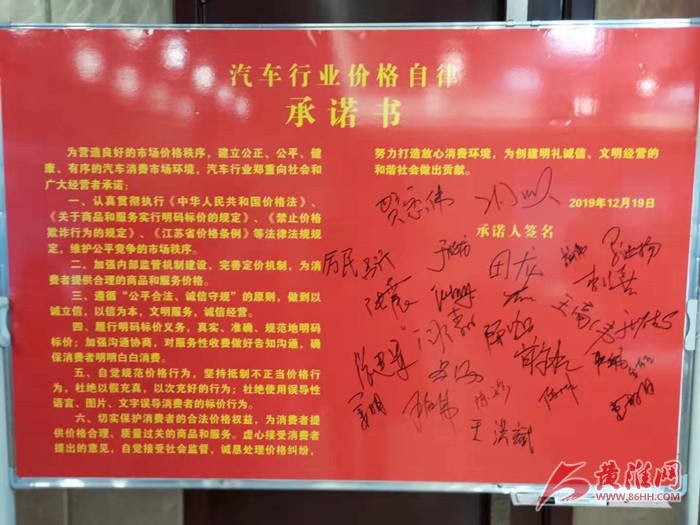 汽车行业价格自律
承诺书
为营造良好的市场价格秩序，建立公正、公平、健
康、有序的汽车消费市场环境，汽车行业郑重向社会和
广大经营者承诺：
一、认真贯彻执行《中华人民共和国价格法》、
《关于商品和服务实行明码标价的规定》、《禁止价格
欺诈行为的规定》、《江苏省价格条例》等法律法规规
定，维护公平竞争的市场秩序。
二、加强内部监管机制建设，完善定价机制，为消
费者提供合理的商品和服务价格。
三、遵循“公平合法、诚信守规”的原则，做到以
诚立信，以信为本，文明服务，诚信经营。
四、履行明码标价义务，真实、准确、规范地明码
标价；加强沟通协商，对服务性收费做好告知沟通，确
保消费者明明白白消费。
五、自觉规范价格行为，坚持抵制不正当价格行
为，杜绝以假充真，以次充好的行为；杜绝使用误导性
语言、图片、文字误导消费者的标价行为。
六、切实保护消费者的合法价格权益，为消费者提
供价格合理、质量过关的商品和服务。虚心接受消费者
提出的意见，自觉接受社会监督，诚恳处理价格纠纷，
努力打造放心消费环境，为创建明礼诚信、文明经营的
和谐社会做出贡献。
2019年12月19日
承诺人签名
田龙
王洪斌
黄淮网
WWW.86HH.COM